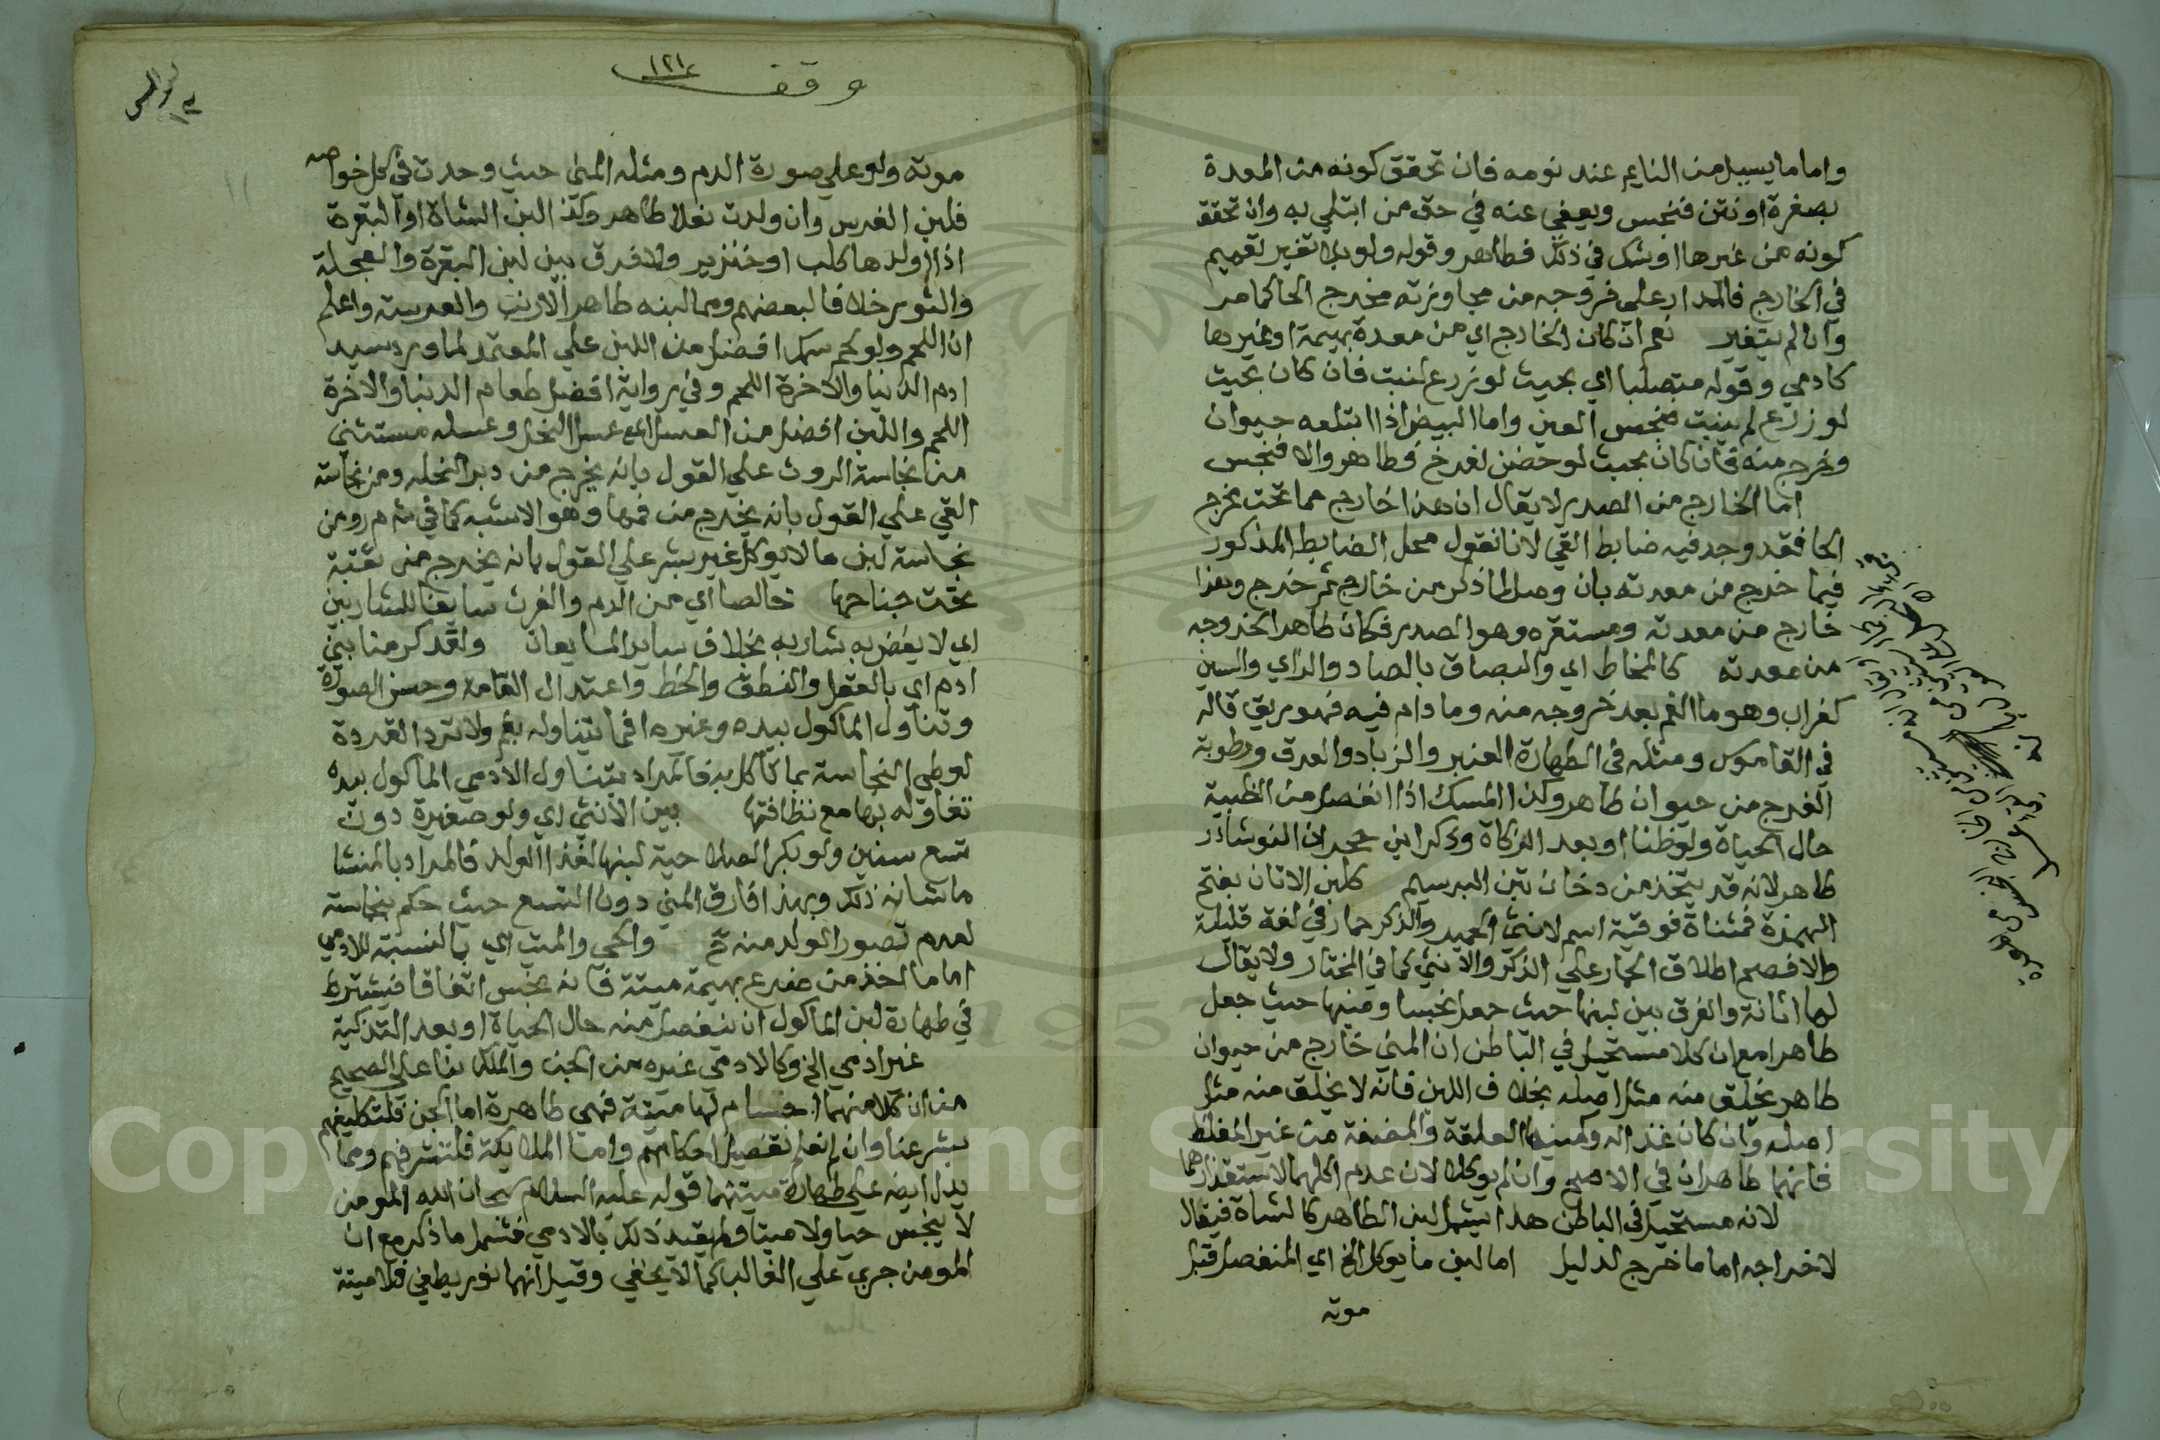 واما ما يسيل من النايم عند نومه فان تحقق كونه من المعدة
بصفرة او نتن فنجس ويعفي عنه في حق من ابتلي به وان تحقق
كونه من غيرها او شك في ذلك فطاهر وقوله ولو بلا تغير تعميم
في الخارج فالمدار علي خروجه من مجاوزته مخرج الحا كما مر
وان لم يتغير نعم ان كان الخارج اي من معدة بهيمة او غيرها
كادمي وقوله متصلبا اي بحيث لو زرع لنبت فان كان بحيث
لو زرع لم ينبت فنجس العين واما البيض اذا ابتلعه حيوان
وخرج منه فان كان بحيث لو حضن لفرخ فطاهر والا فنجس
اما الخارج من الصدر لا يقال ان هذا خارج مما تحت مخرج
الحا فقد وجد فيه ضابط القي لانا نقول محل الضابط المذكور
فيما خرج من معدته بان وصل لما ذكر من خارج ثم خرج وهذا
خارج من معدته ومستقره وهو الصدر فكان طاهرا لخروجه
من معدته كالمخاط اي والبصاق بالصاد والزاي والسين
كغراب وهو ما الفم بعد خروجه منه وما دام فيه فهو ريق قاله
في القاموس ومثله في الطهارة العنبر والزباد والعرق ورطوبة
الفرج من حيوان طاهر وكذا المسك اذا انفصل من الظبية
حال الحياة ولو ظنا او بعد الزكاة وذكر ابن حجر ان النوشادر
طاهر لانه قد يتخذ من دخان تبن البرسيم كلبن الاتان بفتح
الهمزة فمثناة فوقية اسم لانثي الحمير والذكر حمار في لغة قليلة
والا فصح اطلاق الحمار علي الذكر والانثي كما في المختار ولا يقال
لها اتانة والفرق بين لبنها حيث جعل نجسا ومنيها حيث جعل
طاهرا مع ان كلا مستحيل في الباطن ان المني خارج من حيوان
طاهر يخلق منه مثل اصله بخلاف اللبن فانه لا يخلق منه مثل
اصله وان كان غذا له وكمنيها العلقة والمضغة من غير المغلظ
فانهما طاهران في الاصح وان لم يوكلا لان عدم اكلهما لاستقذارهما
لانه مستحيل في الباطن هذا يشمل لبن الطاهر كالشاة فيقال
لاخراجه اما ما خرج لدليل اما لبن ما يوكل الخ اي المنفصل قبل
موته
وقف ١٢١
موته ولو علي صورة الدم ومثله المني حيث وجدت في كل خواصه
فلبن الفرس وان ولدت بغلا طاهر وكذا لبن الشاة او البقرة
اذا اولدها كلب او خنزير ولا فرق بين لبن البقرة والعجلة
والثور خلافا لبعضهم ومما لبنه طاهر الارنب والعرسة واعلم
ان اللحم ولو لحم سمك افضل من اللبن علي المعتمد لما ورد سيد
ادم الدنيا والاخرة اللحم وفي رواية افضل طعام الدنيا والاخرة
اللحم واللبن افضل من العسل اي عسل النحل وعسله مستثني
من نجاسة الروث علي القول بانه يخرج من دبر النحلة ومن نجاسة
القي علي القول بانه يخرج من فمها وهو الاشبه كما في ش م ر ومن
نجاسة لبن ما لا يوكل غير بشر علي القول بانه يخرج من ثقبة
تحت جناحها خالصا اي من الدم والفرث سايغا للشاربين
اي لا يغص به شاربه بخلاف ساير المايعات ولقد كرمنا بني
ادم اي بالعقل والنطق والخط واعتدال القامة وحسن الصورة
وتناول الماكول بيده وغيره انما يتناوله بفم ولا ترد القردة
لوطي النجاسة بما تاكل به فالمراد بتناول الادمي الماكول بيده
تناوله بها مع نظافتها بين الانثي اي ولو صغيرة دون
تسع سنين ولو بكرا لصلاحية لبنها لغذا الولد فالمراد بالمنشا
ما شانه ذلك وبهذا فارق المني دون التسع حيث حكم بنجاسته
لعدم تصور الولد منه ح والحي والميت اي بالنسبة للادمي
اما ما اخذ من ضرع بهيمة ميتة فانه نجس اتفاقا فيشترط
في طهارة لبن الماكول ان ينفصل منه حال الحياة او بعد التذكية
غير ادمي الخ وكالادمي غيره من الجن والملك بنا علي الصحيح
من ان كلا منهما اجسام لها ميتة فهي طاهرة اما الجن فلتكليفهم
بشرعنا وان لم نعلم تفصيل احكامهم واما الملايكة فلتشرفهم ومما
يدل ايضا علي طهارة ميتتهما قوله عليه السلام سبحان الله المومن
لا ينجس حيا ولا ميتا ولم يقيد ذلك بالادمي فشمل ما ذكر مع ان
المومن جري علي الغالب كما لا يخفي وقيل انهما نور يطفي فلا ميتة